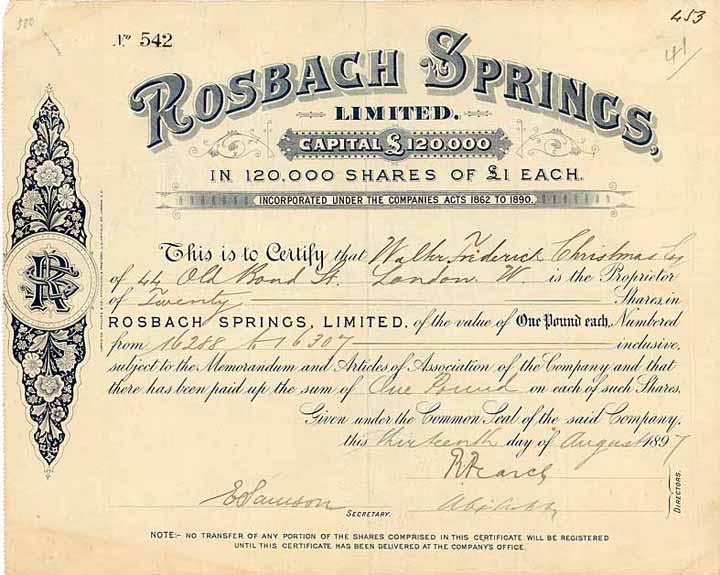 500
453
41
No 542
ROSBACH SPRINGS,
LIMITED.
CAPITAL £120,000
IN 120,000 SHARES OF £1 EACH.
INCORPORATED UNDER THE COMPANIES ACTS 1862 TO 1890.
This is to Certify that Walter Frederick Christmas Esq
of 44 Old Bond St. London W. is the Proprietor
of Twenty Shares, in
ROSBACH SPRINGS, LIMITED, of the value of One Pound each, Numbered
from 16288 to 16307 inclusive,
subject to the Memorandum and Articles of Association of the Company and that
there has been paid up the sum of One Pound on each of such Shares.
Given under the Common Seal of the said Company,
this thirteenth day of August 1897
E Samson
SECRETARY.
DIRECTORS.
NOTE:- NO TRANSFER OF ANY PORTION OF THE SHARES COMPRISED IN THIS CERTIFICATE WILL BE REGISTERED
UNTIL THIS CERTIFICATE HAS BEEN DELIVERED AT THE COMPANY'S OFFICE.